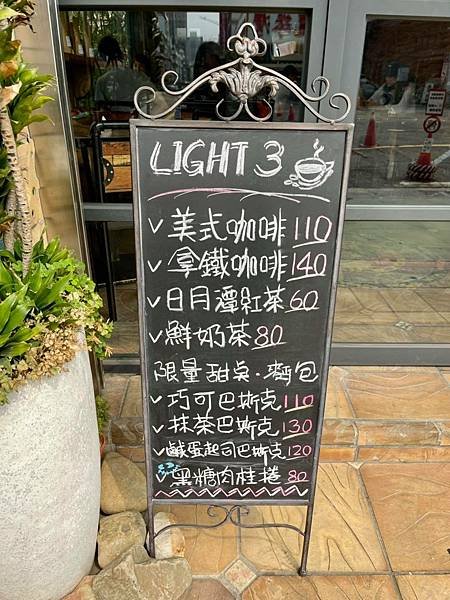 LIGHT 3
✓美式咖啡110
✓拿鐵咖啡140
✓日月潭紅茶60
✓鮮奶茶80
限量甜点·麵包
✓巧可巴斯克110
✓抹茶巴斯克130
✓鹹蛋起司巴斯克120
黑糖肉桂捲80